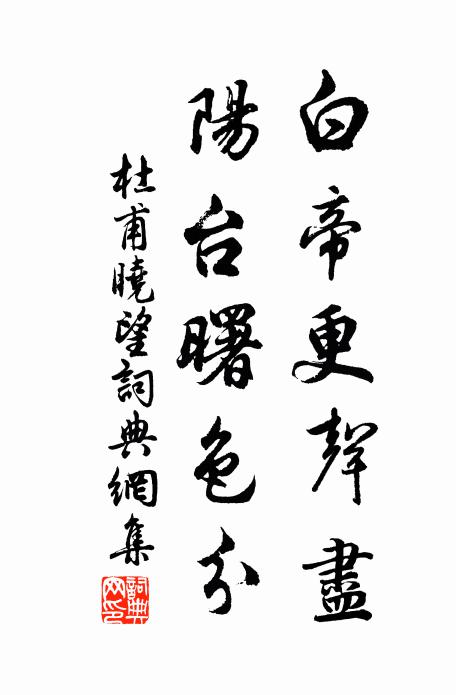 白帝更聲盡
陽台曙色分
杜甫曉望詞典網集
詞典网印